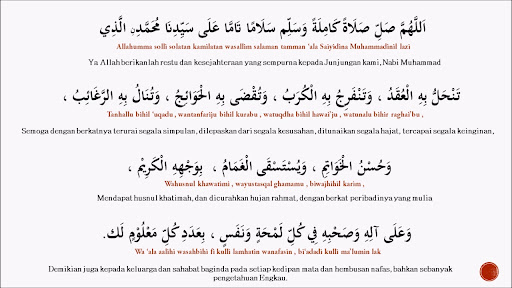 اَللَّهُمَّ صَلِّ صَلَاةً كَامِلَةً وَسَلِّمْ سَلَامًا تَامًّا عَلَى سَيِّدِنَا مُحَمَّدِنِ الَّذِي
Allahumma solli solatan kamilatan wasallim salaman tamman 'ala Saiyidina Muhammadinil lazi
Ya Allah berikanlah restu dan kesejahteraan yang sempurna kepada Junjungan kami, Nabi Muhammad
تَنْحَلُّ بِهِ الْعُقَدُ ، وَتَنْفَرِجُ بِهِ الْكُرَبُ ، وَتُقْضَى بِهِ الْحَوَائِجُ ، وَتُنَالُ بِهِ الرَّغَائِبُ ،
Tanhallu bihil 'uqadu , wantanfariju bihil kurabu , watuqdha bihil hawai'ju , watunalu bihir raghai'bu ,
Semoga dengan berkatnya terurai segala simpulan, dilepaskan dari segala kesusahan, ditunaikan segala hajat, tercapai segala keinginan,
وَحُسْنُ الْخَوَاتِمِ ، وَيُسْتَسْقَى الْغَمَامُ ، بِوَجْهِهِ الْكَرِيْمِ ،
Wahusnul khawatimi , wayustasqal ghamamu , biwajhihil karim ,
Mendapat husnul khatimah, dan dicurahkan hujan rahmat, dengan berkat peribadinya yang mulia
وَعَلَى آلِهِ وَصَحْبِهِ فِي كُلِّ لَمْحَةٍ وَنَفَسٍ ، بِعَدَدِ كُلِّ مَعْلُوْمٍ لَك.
Wa 'ala aalihi wasahbihi fi kulli lamhatin wanafasin , bi'adadi kulli ma'lumin lak
Demikian juga kepada keluarga dan sahabat baginda pada setiap kedipan mata dan hembusan nafas, bahkan sebanyak
pengetahuan Engkau.